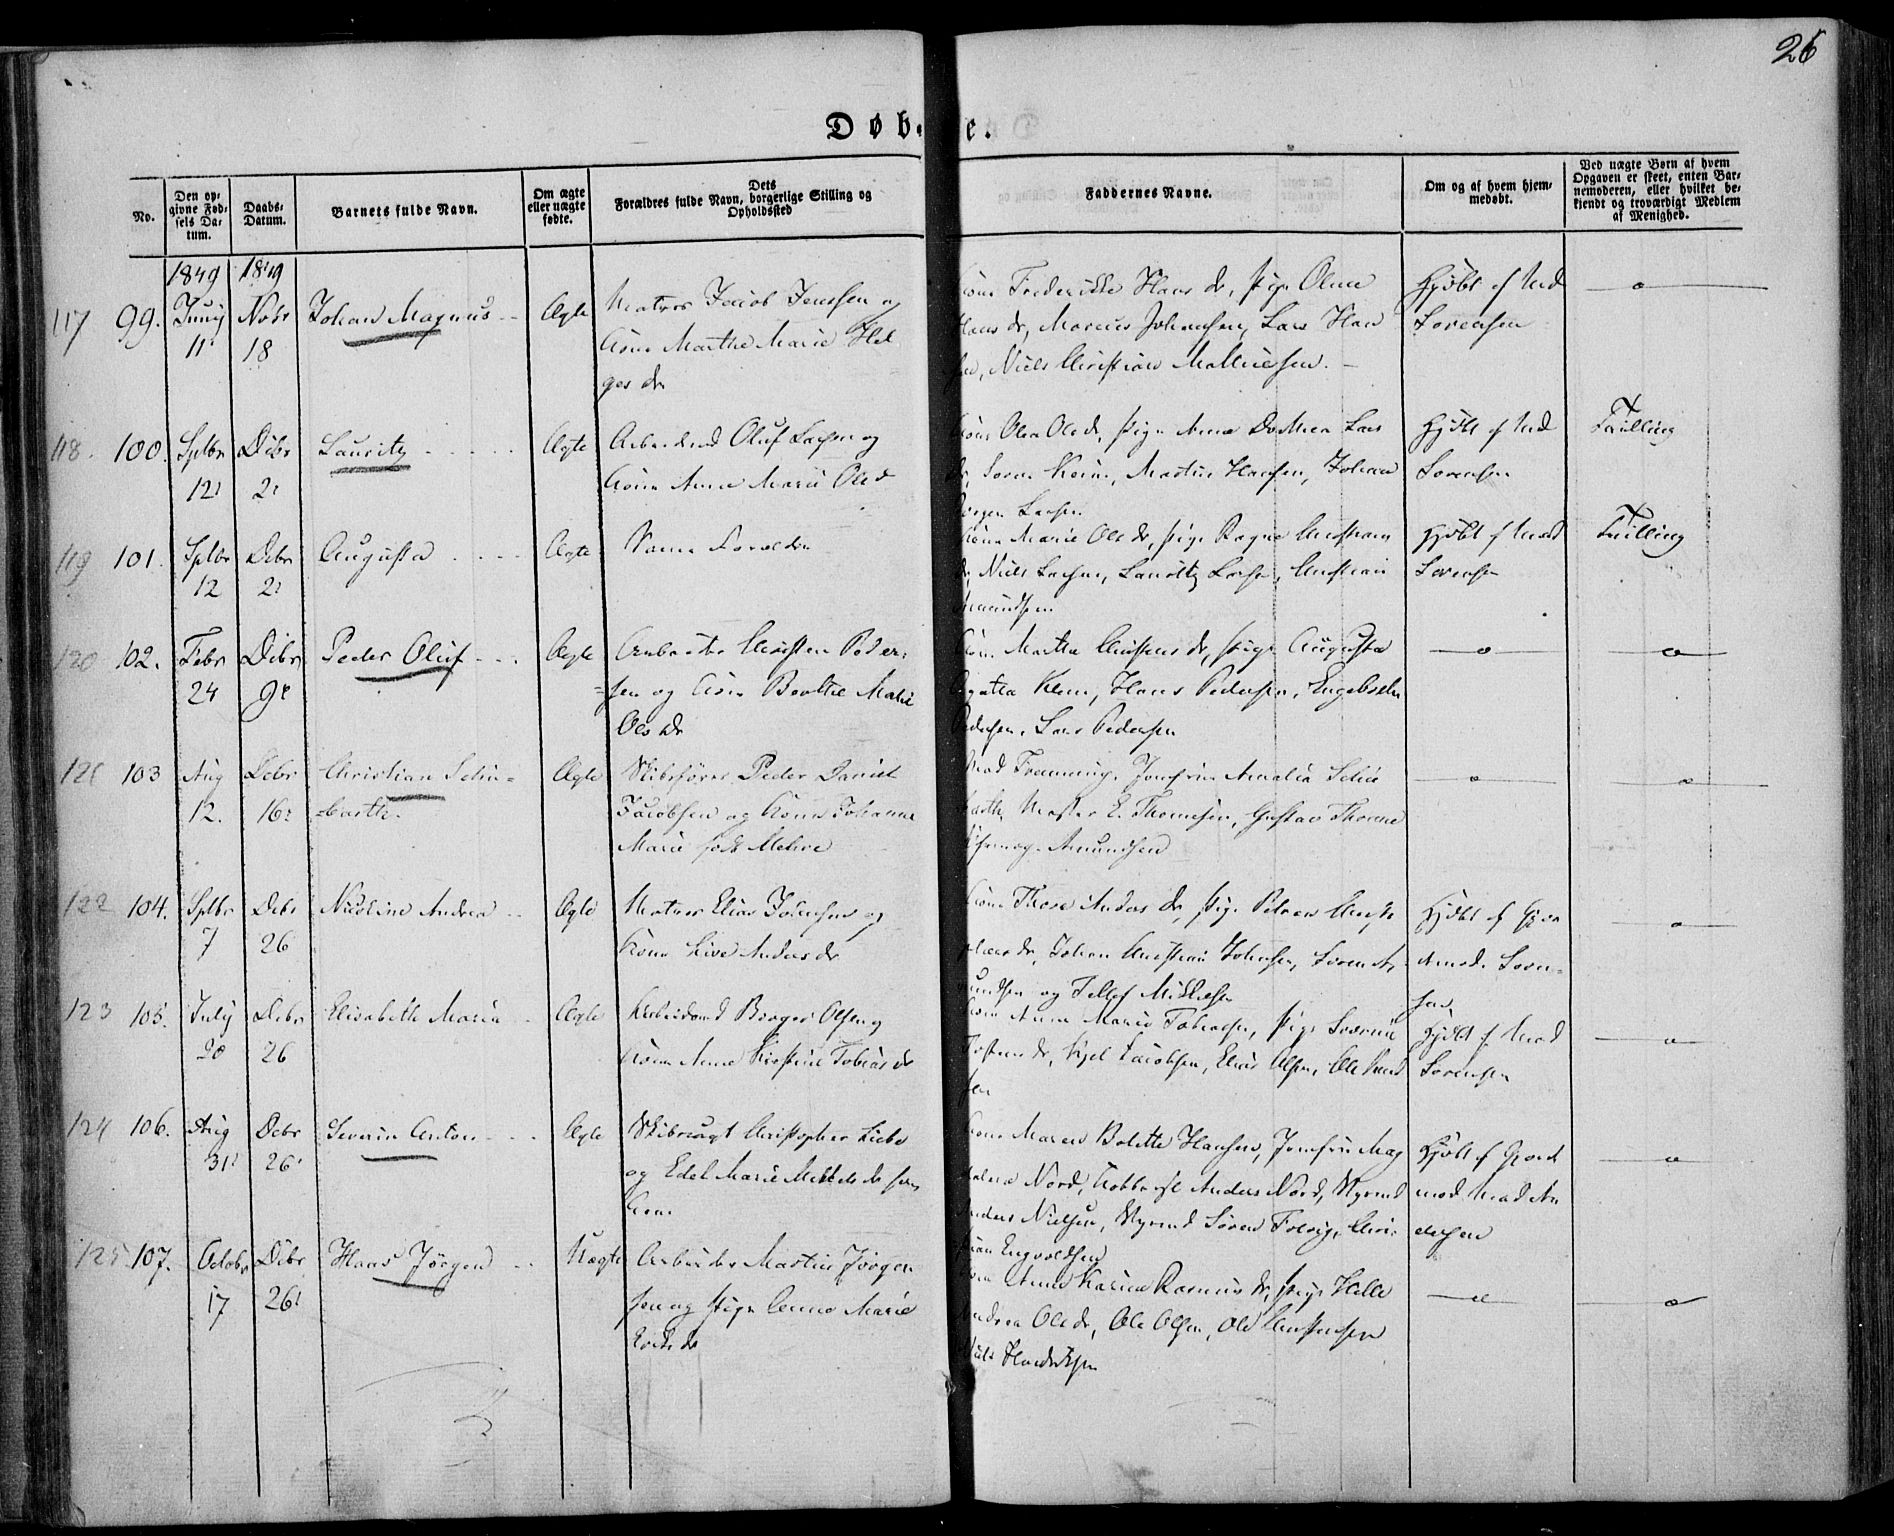 26
Døb e.
No.
Den op-
givne Fød-
sels Da-
tum.
Daabs-
Datum.
Barnets fulde Navn.
Om ægte
eller uægte
fødte.
Dets
Forældres fulde Navn, borgerlige Stilling og
Opholdssted
Faddernes Navne.
Om og af hvem hjem-
medøbt.
Ved uægte Børn af hvem
Opgaven er skeet, enten Bar-
nemoderen, eller hvilket be-
kjendt og troværdigt Medlem
af Menighed.
1849 1849
117 99. Junij Nobr Johan Magnus Ægte Matros Jacob Jenssen og
11 18 Kone Marthe Marie Hel
ges dr
Kone Frederikke Hans dr, Pige Oline
Hans dr, Marcus Johansen, Lars Han
sen, Niels Christian Mathiesen.
Hjdøbt af Mad
Sørensen
118. 100. Sptbr Debr Lauritz Ægte Arbeidsmd Oluf Larsen og
12 2 Kone Anne Marie Ols d
Kone Olea Ole dr, Pige Anne Dorthea Lars
dr, Søren Keim, Martin Hansen, Johan
Jørgen Larsen
Hjdøbt af Mad
Sørensen
Tvilling
119 101. Sptbr Debr Augusta Ægte Samme Forældre
12 2
Kone Marie Ole dr, Pige Ragne Christians
dr, Niels Larsen, Lauritz Larsen, Christian
Amundsen
Hjdøbt af Mad
Sørensen
Tvilling
120 102. Febr Debr Peder Oluf Ægte Arbeider Christen Peder-
24 9 sen og Kone Berthe Marie
Ols dr
Kone Marthe Christens dr, Pige Augusta
Agatha Keim, Hans Pedersen, Engebreth
Pedersen, Lars Pedersen
121 103 Aug Debr Christian Schi- Ægte Skibsfører Peder Daniel
12. 16 barth. Jacobsen og Kone Johanne
Marie født
Mad Fremming, Jomfrue Amalia Schi
barth, E. Thomesen, Gustav Thorne
Amundsen
122 104. Sptbr Debr Nicoline Andrea Ægte Matros Elias Johnsen og
7 26 Kone Live Anders dr
Kone Thore Anders dr, Pige Petrea Christ
Johan Christian Johnsen, Søren A-
mundsen og Tellef Mikkelsen
Hjdøbt af
Søren-
sen
123 105. July Debr Elisabeth Maria Ægte Arbeidsmd Birger Olsen og
20 26 Kone Anne Kirstine Tobias dr
Kone Anne Marie Tobiasen, Pige Severine
Torsten dr, Kjel Jacobsen, Elias Olsen, Ole
sen
Hjdøbt af Mad
Sørensen
124 106. Aug Debr Severin Anton Ægte Skibsvægt Christopher Liebe
31 26 og Edel Marie Mikkels dr hans
Kone
Kone Maren Bolette Hansen, Jomfrue Mag
dalena Nord, Anders Nord, Styrmd
Anders Nielsen, Styrmd Søren Chri-
stian Engvoldsen
Hjdøbt af
mod Mad An
dersen
125 107. Octobr Debr Hans Jørgen Uægte Arbeider Martin Jørgen
17 26 sen og Pige Anne Marie
Eriks dr
Kone Anne Karine Rasmus dr, Pige Helle
Andrea Ole dr, Ole Olsen, Ole Christensen
Niels Hendriksen